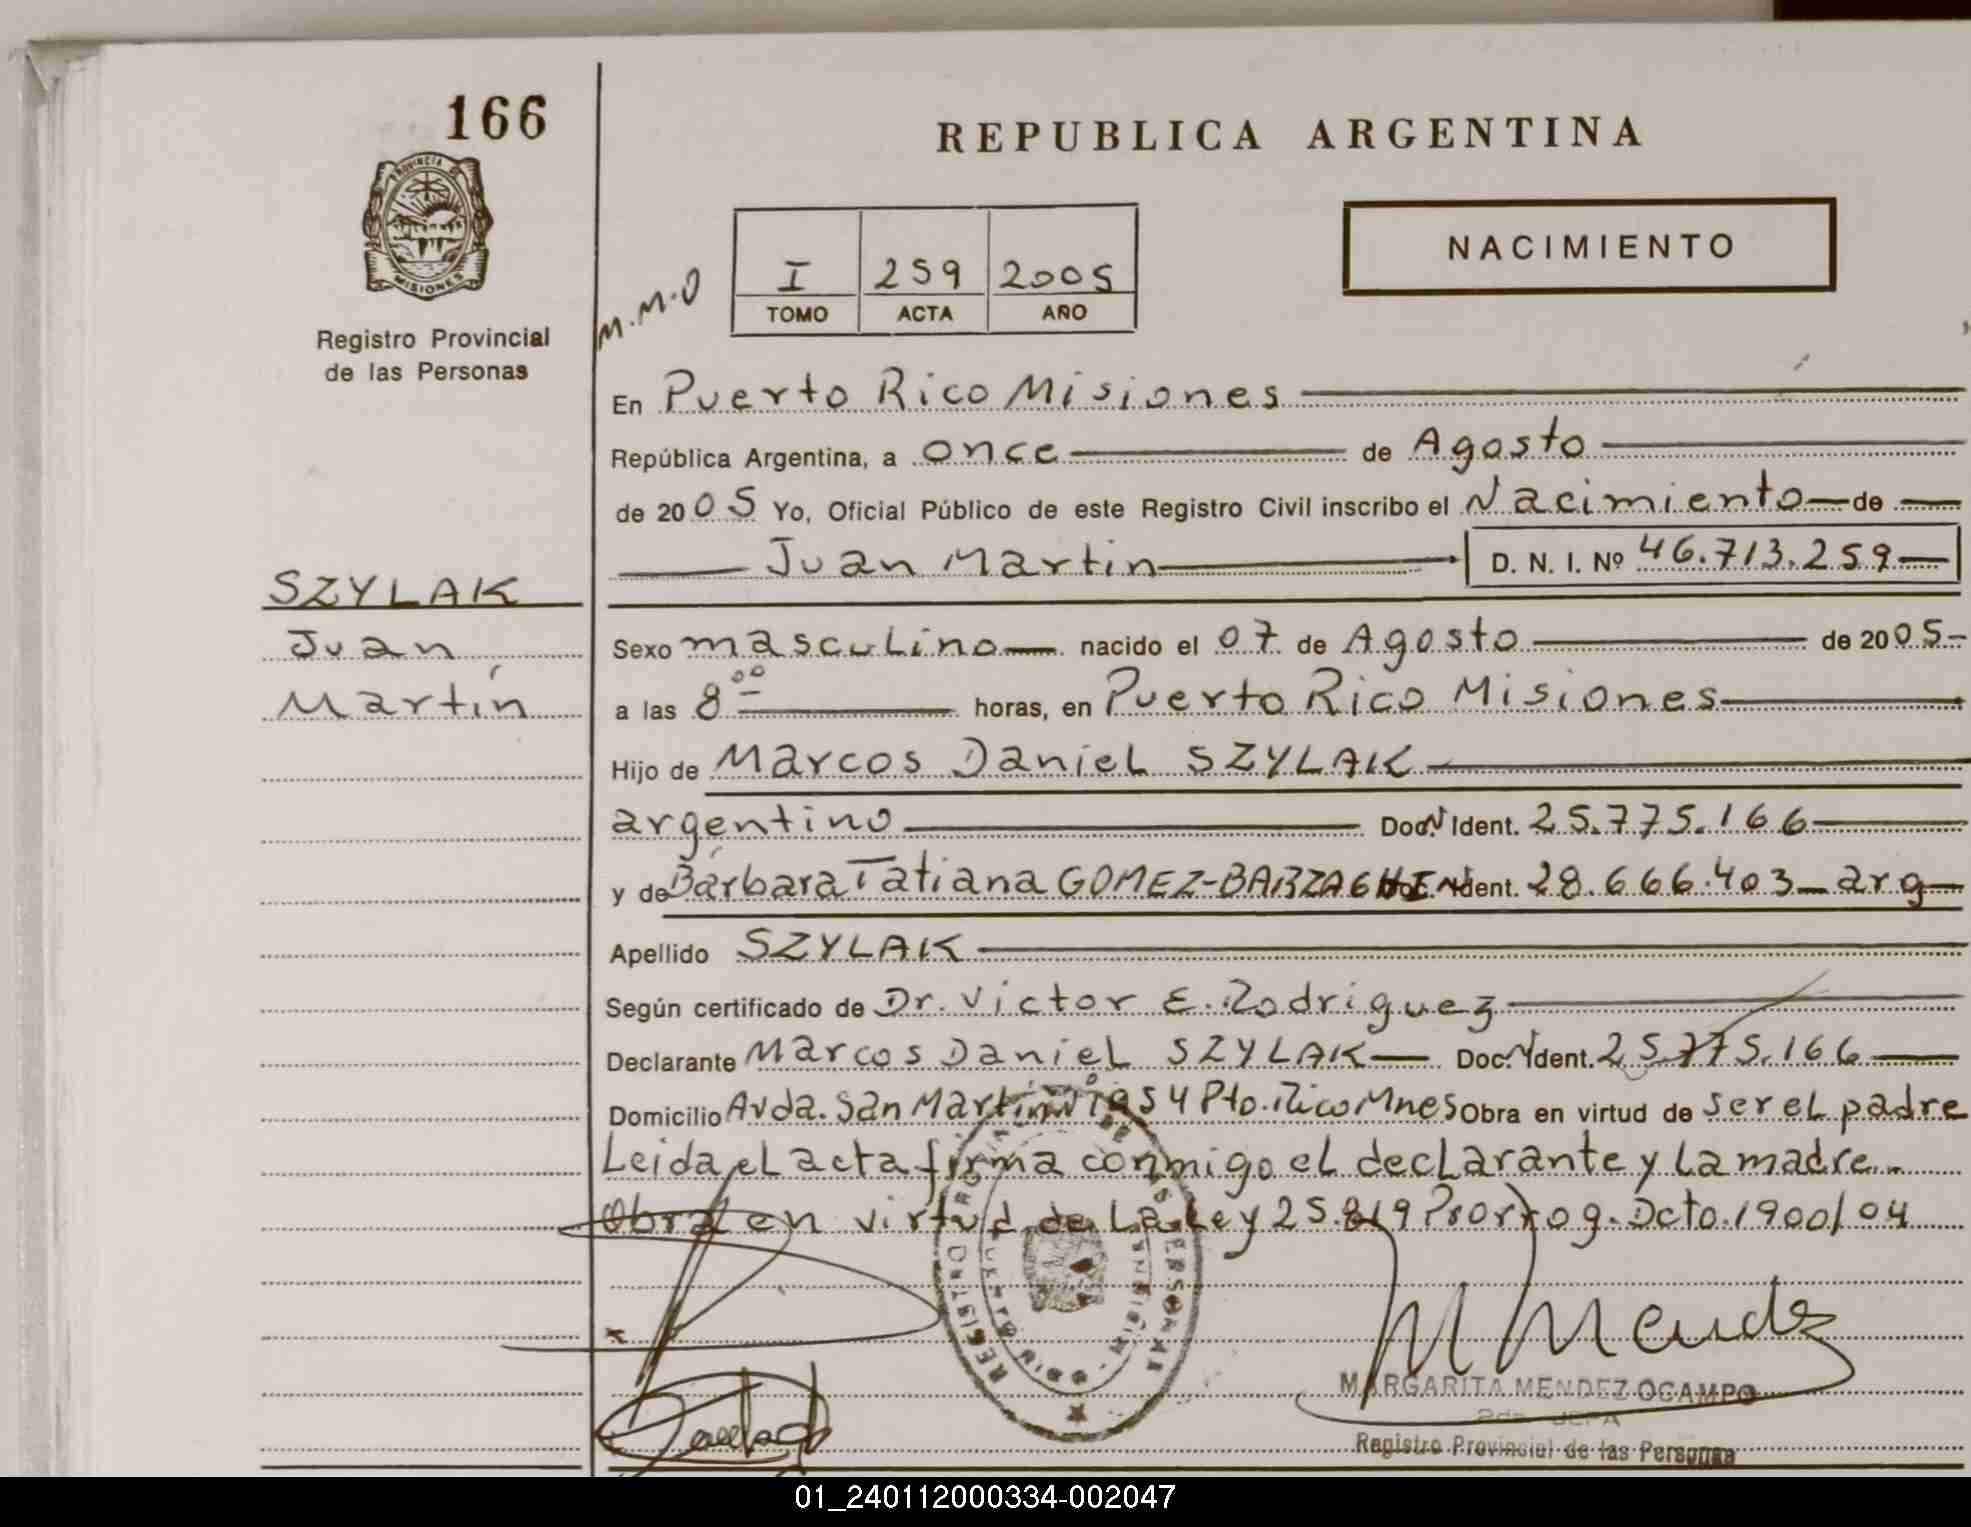 166
PROVINCIA DE
MISIONES
Registro Provincial
de las Personas
SZYLAK
Juan
Martín
REPUBLICA ARGENTINA
NACIMIENTO
M.M.O
I 259 2005
TOMO ACTA AÑO
En Puerto Rico Misiones
República Argentina, a once de Agosto
de 2005 Yo, Oficial Público de este Registro Civil inscribo el Nacimiento de
Juan Martin D. N. I. Nº 46.713.259
Sexo masculino nacido el 07 de Agosto de 2005
a las 8 00 horas, en Puerto Rico Misiones
Hijo de Marcos Daniel SZYLAK
argentino Doc. N Ident. 25.775.166
y de Bárbara Tatiana GOMEZ-BARZAGHI Ident. 28.666.403 arg
Apellido SZYLAK
Según certificado de Dr. Victor E. Rodriguez
Declarante Marcos Daniel SZYLAK Doc. N Ident. 25.775.166
Domicilio Avda. San Martín Nº 1954 Pto. Rico Mnes Obra en virtud de ser el padre
Leida el acta firma conmigo el declarante y la madre
Obra en virtud de la Ley 25.819 Prorrog. Dcto. 1900/04
M Mendez
MARGARITA MENDEZ OCAMPO
2da. JEFA
Registro Provincial de las Personas
01_240112000334-002047